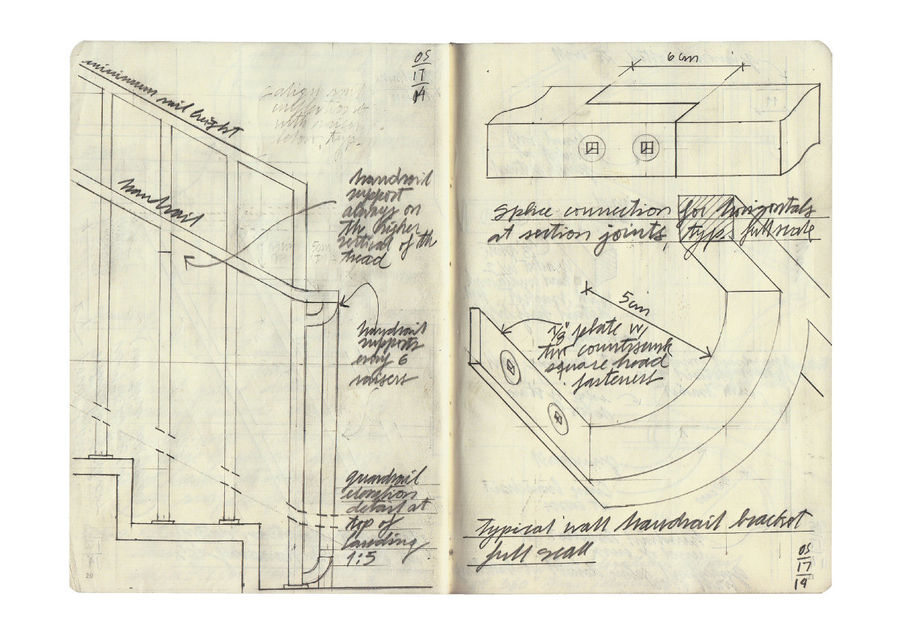 05
17
14
minimum rail height
handrail
handrail
support
always on
the higher
vertical of the
tread
handrail
supports
every 6
raisers
guardrail
elevation
detail at
top of
landing
1:5
6cm
splice connection for horizontals
at section joints, typ. full scale
5cm
1/8" plate w/
two countersunk
square head
fasteners
typical wall handrail bracket
full scall
05
17
14